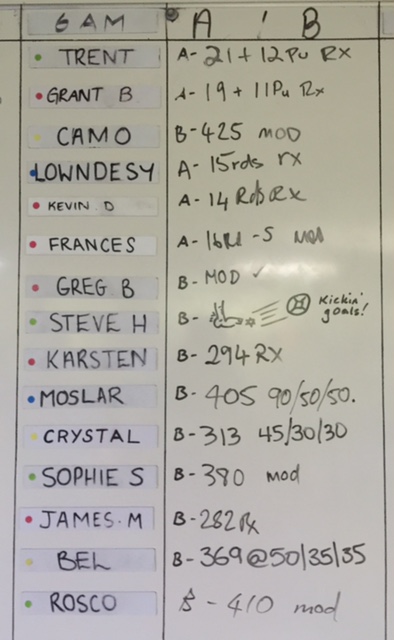 6AM A / B
TRENT A- 21 + 12 Pu Rx
GRANT B A- 19 + 11Pu Rx
CAMO B- 425 MOD
LOWNDESY A- 15rds rx
KEVIN D A- 14 Rds Rx
FRANCES A- 16Rd -5 MOD
GREG B B- MOD ✓
STEVE H B- Kickin' goals!
KARSTEN B- 294 RX
MOSLAR B- 405 90/50/50.
CRYSTAL B- 313 45/30/30
SOPHIE S B- 380 mod
JAMES.M B- 282 Rx
BEL B- 369@50/35/35
ROSCO - 410 mod